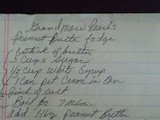 Grandmaw Pearl's
Peanut Butter fudge
1 stick of butter
3 Cups Sugar
1/2 Cup White Syrup
1 Can pet Cream in Can
Pinch of salt
Boil to 7 min.
add 18oz Peanut Butter